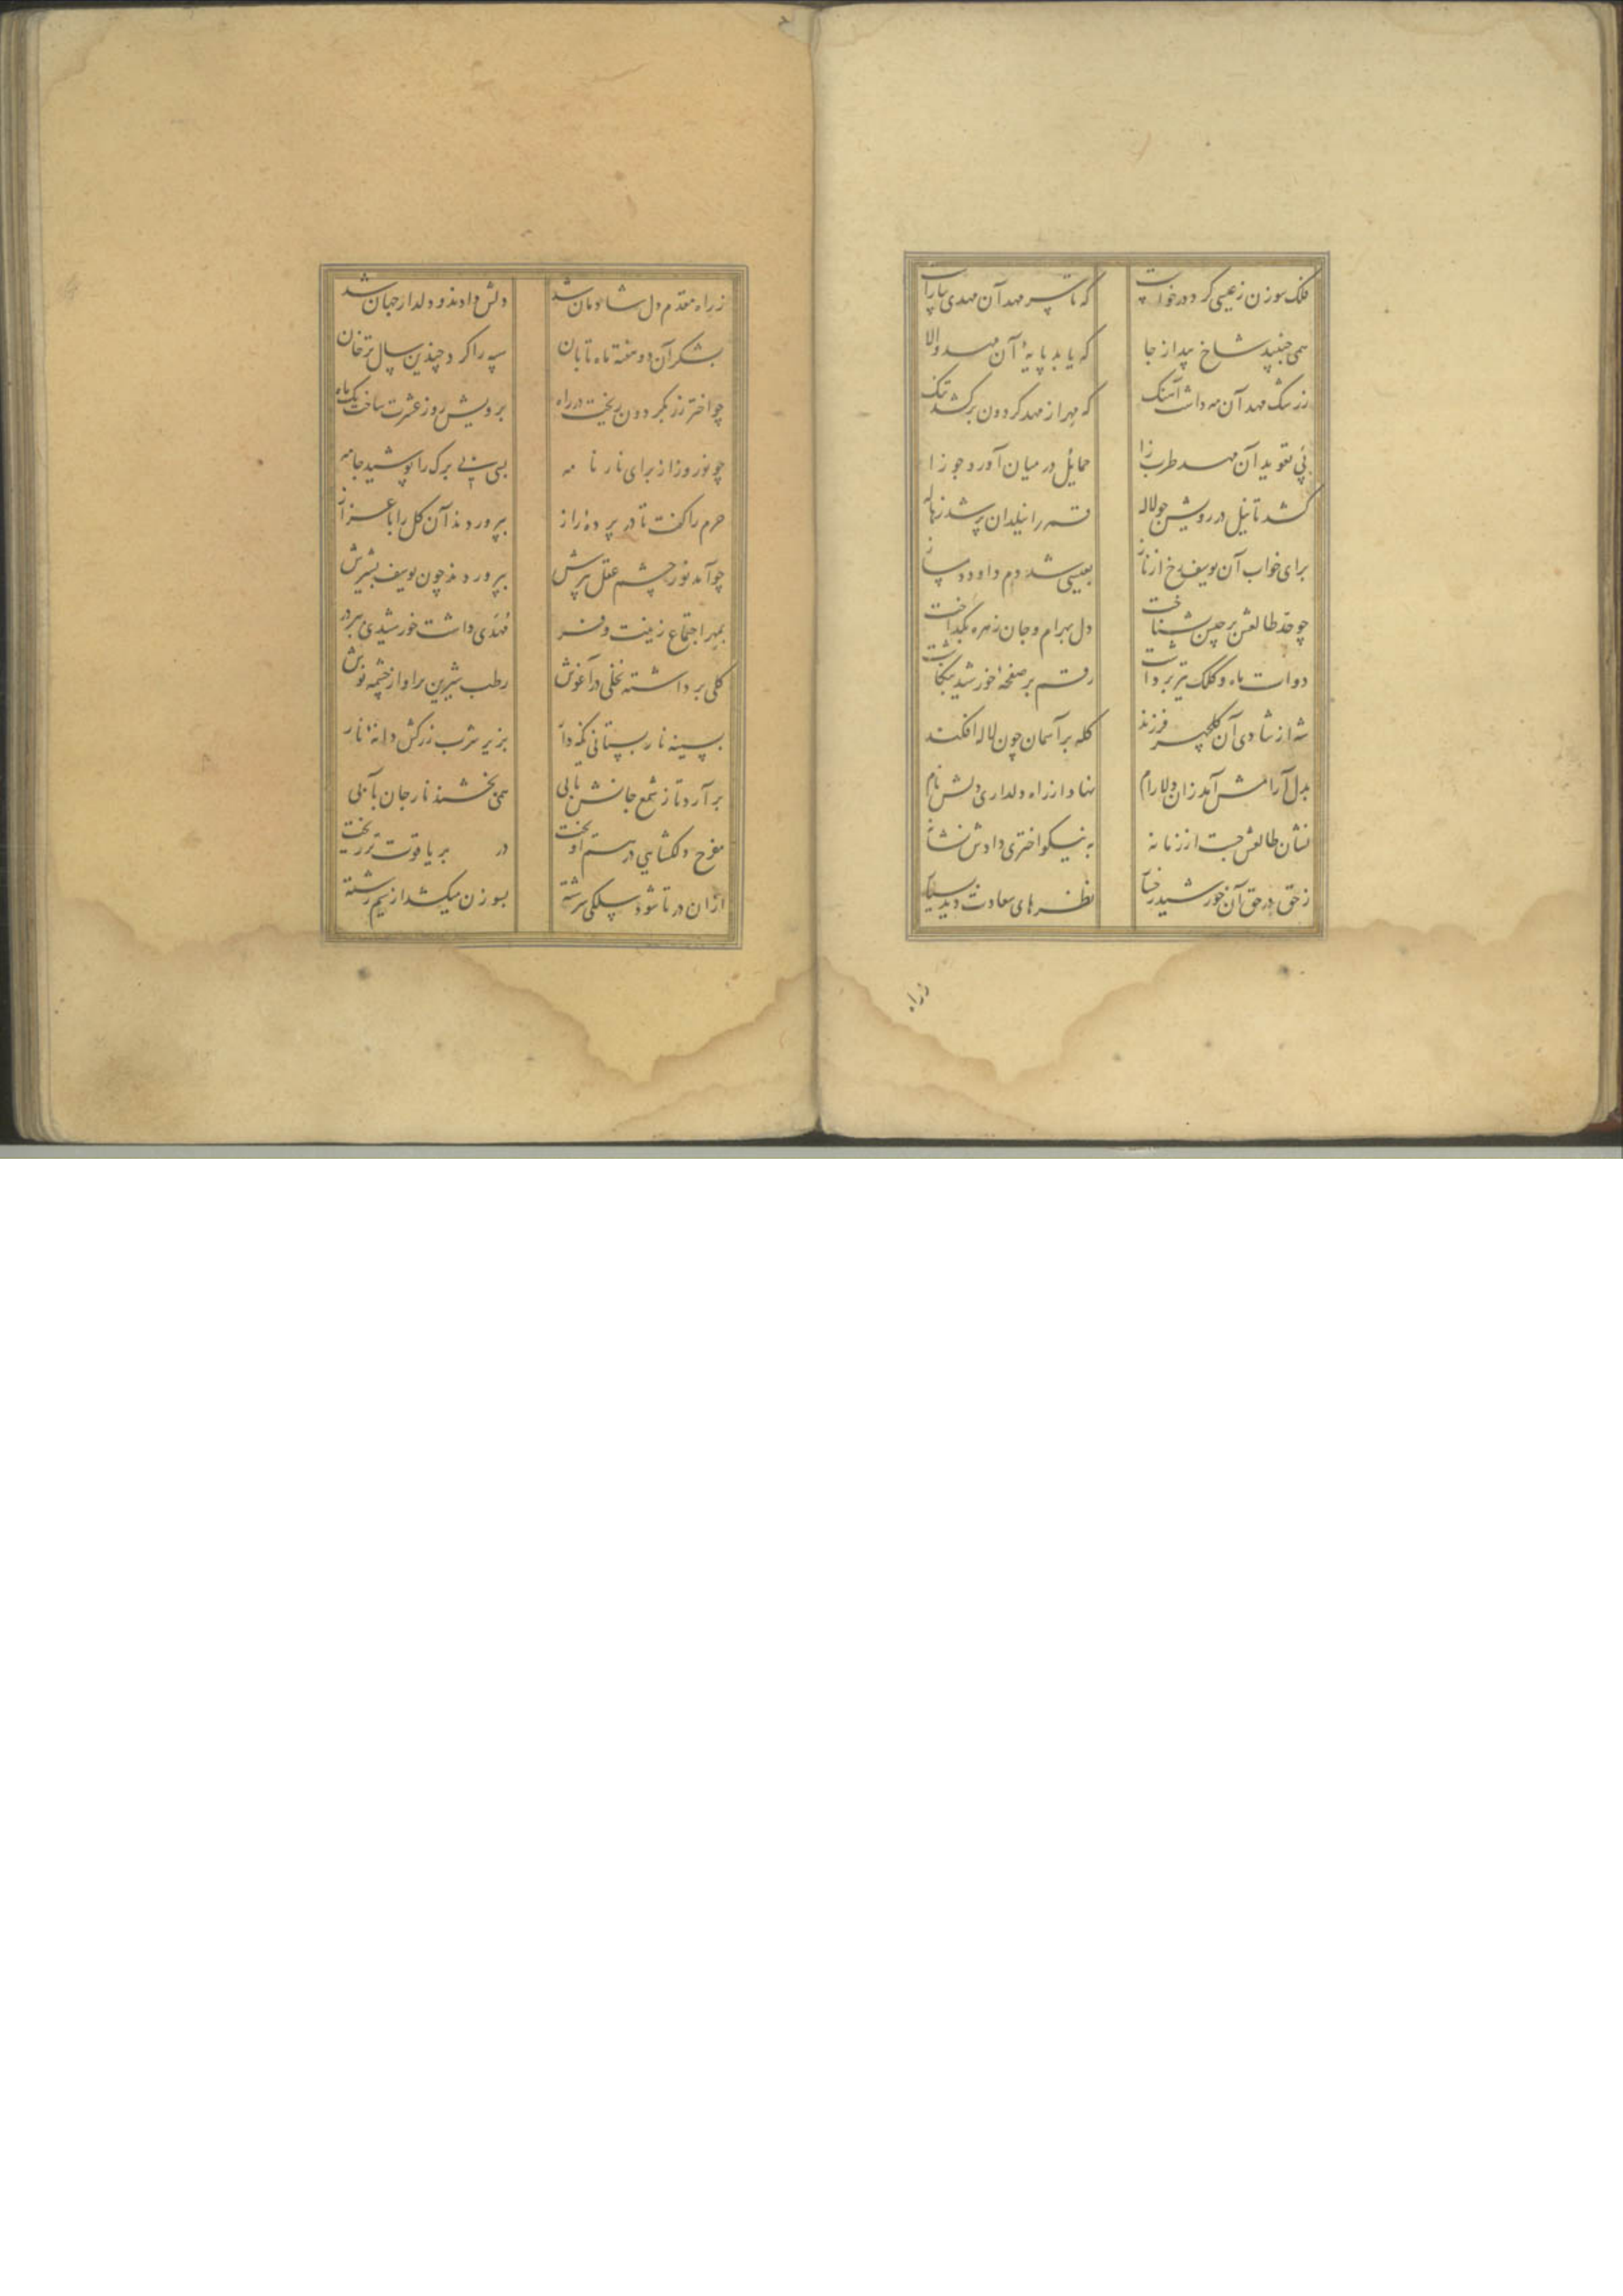 فلک سوزن ز عیسی کرد درخواست که تا سر مهد آن مهدی بیاراست
همی جنبید شاخ بید از جا که یابد پایهٔ آن مهد والا
ز رشک مهد آن مه داشت آهنگ که مهر از مهد گردون برکشد تنگ
پی تعوید آن مهد طرب زا حمایل در میان آورد جوزا
کشد تا نیل در رویش چو لاله قمر را نیلدان پر شد ز هاله
برای خواب آن یوسف رخ از ناز بعیسی شد دم داود دمساز
چو خد طالعش برجیس بشناخت دل بهرام و جان زهره بگداخت
دوات ماه و کلک تیر برداشت رقم بر صفحهٔ خورشید بنگاشت
شه از شادی آن گلچهر فرزند کله بر آسمان چون لاله افکند
بدل آرامش آمد زان دلارام نهاد از راه دلداری دلش نام
نشان طالعش جست از زمانه به نیکو اختری دادش نشانه
ز حق در حق آن خورشید رخسار نظرهای سعادت دید بسیار
زراه
ز راه مقدم دل شادمان شد دلش دادند و دلدار جهان شد
بشکر آن دو هفته ماه تابان سپه را کرد چندین سال ترخان
چو اختر زر بگردون ریخت در راه برویش روز عشرت ساخت یک ماه
چو نوروز از برای نار نامه بسی بی برگ را پوشید جامه
حرم را گفت تا در پردهٔ راز بپروردند آن گل را باعزاز
چو آمد نور چشم عقل پیرش بپروردند چون یوسف بشیرش
بمهر اجتماع زینت و فر مهدی داشت خورشیدی ببر در
گلی برداشته نخلی در آغوش رطب شیرین براو از چشمه نوش
بسینه نار پستانی نگه دار بزیر شرب زرکش دانهٔ نار
برآرد تا ز شمع جانش تابی همی بخشند نار جان بآبی
مفرح دلگشایی در هم آمیخت در بر یاقوت تر ریخت
ازان در تا شود سلکی سرشته بسوزن میکشد از سیم رشته